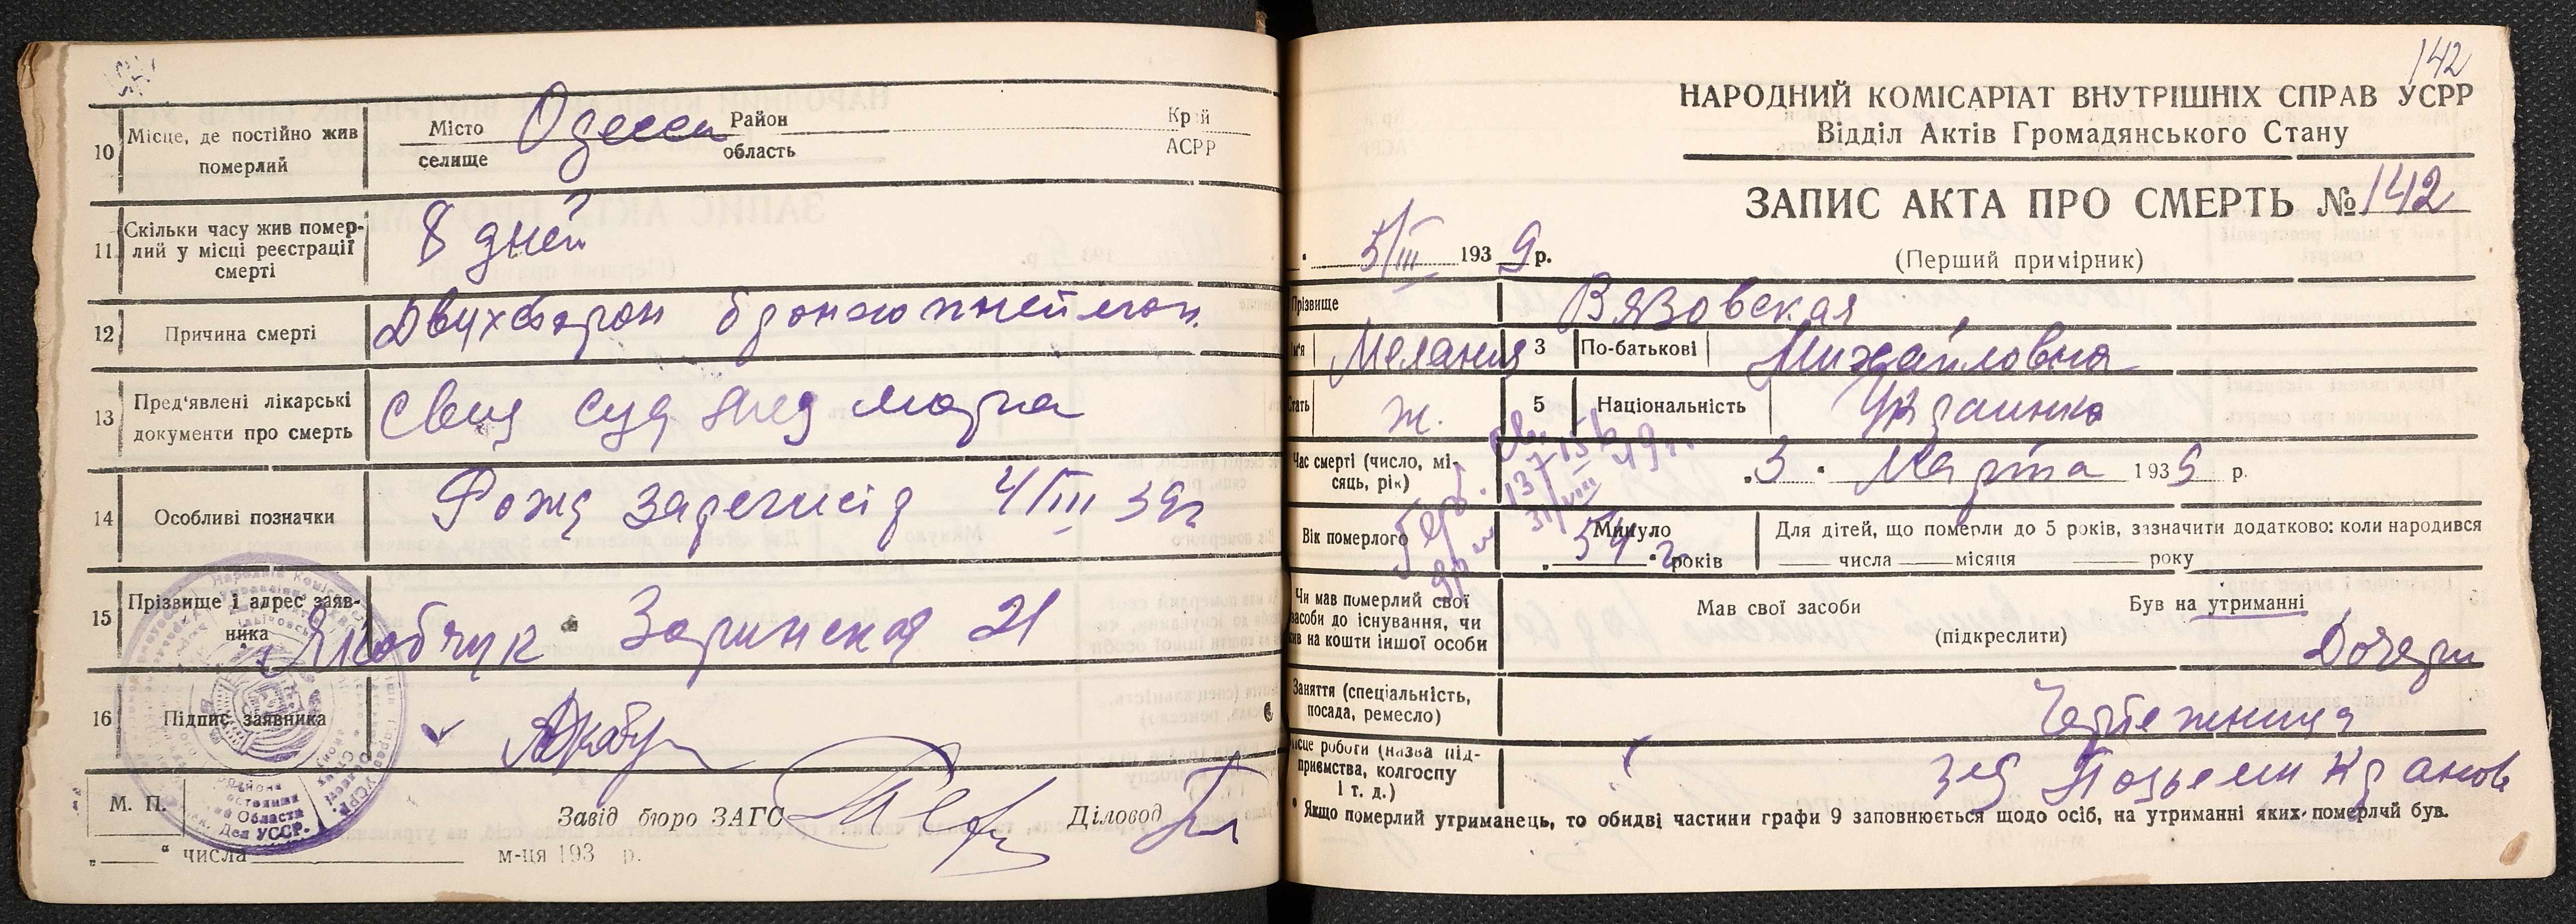 10 Місце, де постійно жив померлий
Місто селище Одесса Район область Край АСРР
11 Скільки часу жив помер-
лий у місці реєстрації
смерті
8 дней
12 Причина смерті
Двухсторон бронхопневмон.
13 Пред'явлені лікарські
документи про смерть
Свид суд мед морга
14 Особливі позначки
Рожд зарегистр 4/III 39г
15 Прізвище і адрес заяв-
ника
Якобчук Заринская 21
16 Підпис заявника
М. П.
Завід бюро ЗАГС
Діловод
„ “ числа м-ця 193 р.
142
НАРОДНИЙ КОМІСАРІАТ ВНУТРІШНІХ СПРАВ УСРР
Відділ Актів Громадянського Стану
ЗАПИС АКТА ПРО СМЕРТЬ № 142
5/III 1939 р.
(Перший примірник)
Прізвище Вязовская
Ім'я Мелания 3 По-батькові Михайловна
Стать ж. 5 Національність Украинка
Час смерті (число, мі-
сяць, рік)
„3“ Марта 1939 р.
Вік померлого
Минуло
„54“ г років
Для дітей, що померли до 5 років, зазначити додатково: коли народився
числа місяця року
Чи мав померлий свої
засоби до існування, чи
жив на кошти іншої особи
Мав свої засоби Був на утриманні
(підкреслити)
Дочери
Заняття (спеціальність,
посада, ремесло)
Чертежница
Місце роботи (назва під-
приємства, колгоспу
і т. д.)
зав Подъемн Кранов
* Якщо померлий утриманець, то обидві частини графи 9 заповнюється щодо осіб, на утриманні яких померлий був.